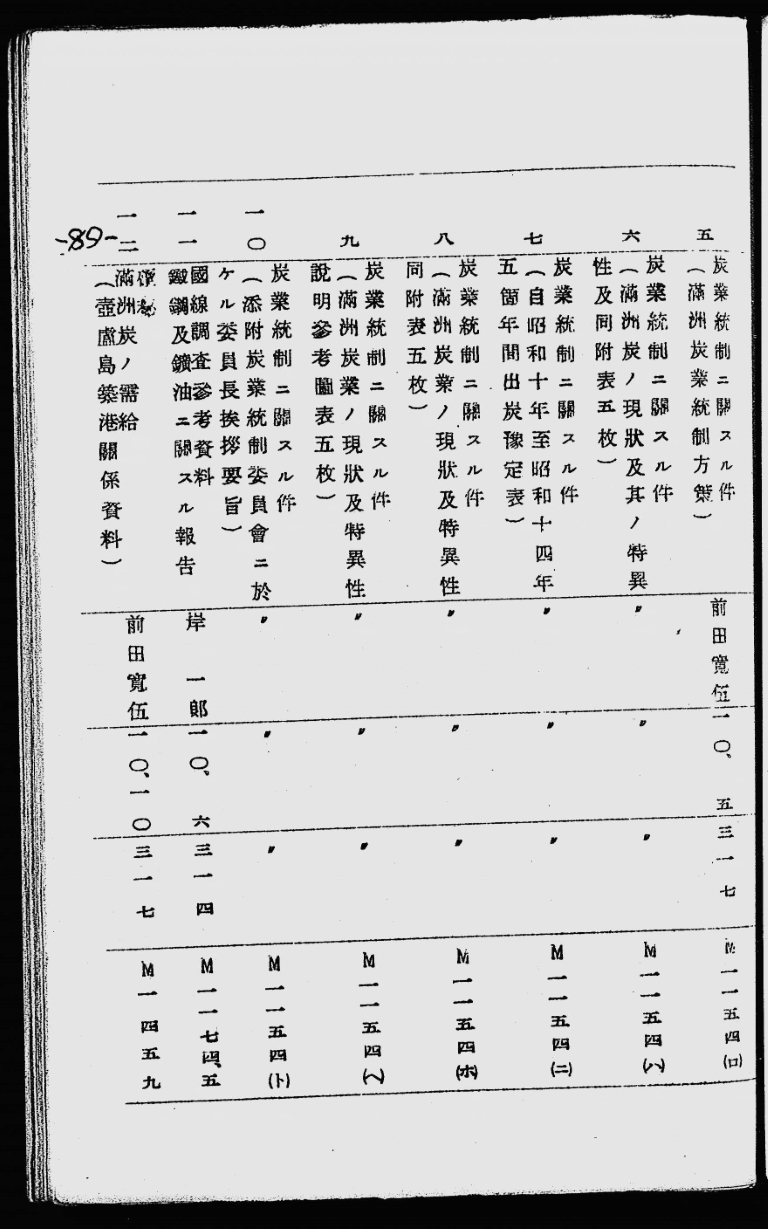 五
炭業統制ニ關スル件
(滿洲炭業統制方策)
前田寬伍
一〇、五
三一七
M一一五四(ロ)
六
炭業統制ニ關スル件
(滿洲炭ノ現狀及其ノ特異
性及同附表五枚)
〃
〃
〃
M一一五四(ハ)
七
炭業統制ニ關スル件
(自昭和十年至昭和十四年
五箇年間出炭豫定表)
〃
〃
〃
M一一五四(ニ)
八
炭業統制ニ關スル件
(滿洲炭業ノ現狀及特異性
同附表五枚)
〃
〃
〃
M一一五四(ホ)
九
炭業統制ニ關スル件
(滿洲炭業ノ現狀及特異性
說明參考圖表五枚)
〃
〃
〃
M一一五四(ヘ)
一〇
炭業統制ニ關スル件
(添附炭業統制委員會ニ於
ケル委員長挨拶要旨)
〃
〃
〃
M一一五四(ト)
一一
國線調査參考資料
鐵鋼及鑛油ニ關スル報告
岸一郞
一〇、六
三一四
M一一七四、五
一二
滿洲炭ノ需給
(壺盧島築港關係資料)
前田寬伍
一〇、一〇
三一七
M一四五九
-89-